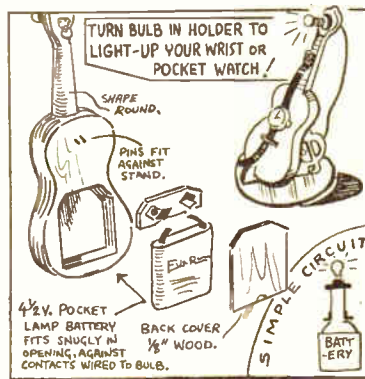 TURN BULB IN HOLDER TO
LIGHT-UP YOUR WRIST OR
POCKET WATCH!
SHAPE
ROUND.
PINS FIT
AGAINST
STAND.
4½V. POCKET
LAMP BATTERY
FITS SNUGLY IN
OPENING, AGAINST
CONTACTS WIRED TO BULB.
BACK COVER
⅛" WOOD.
SIMPLE CIRCUIT
BATT
-ERY